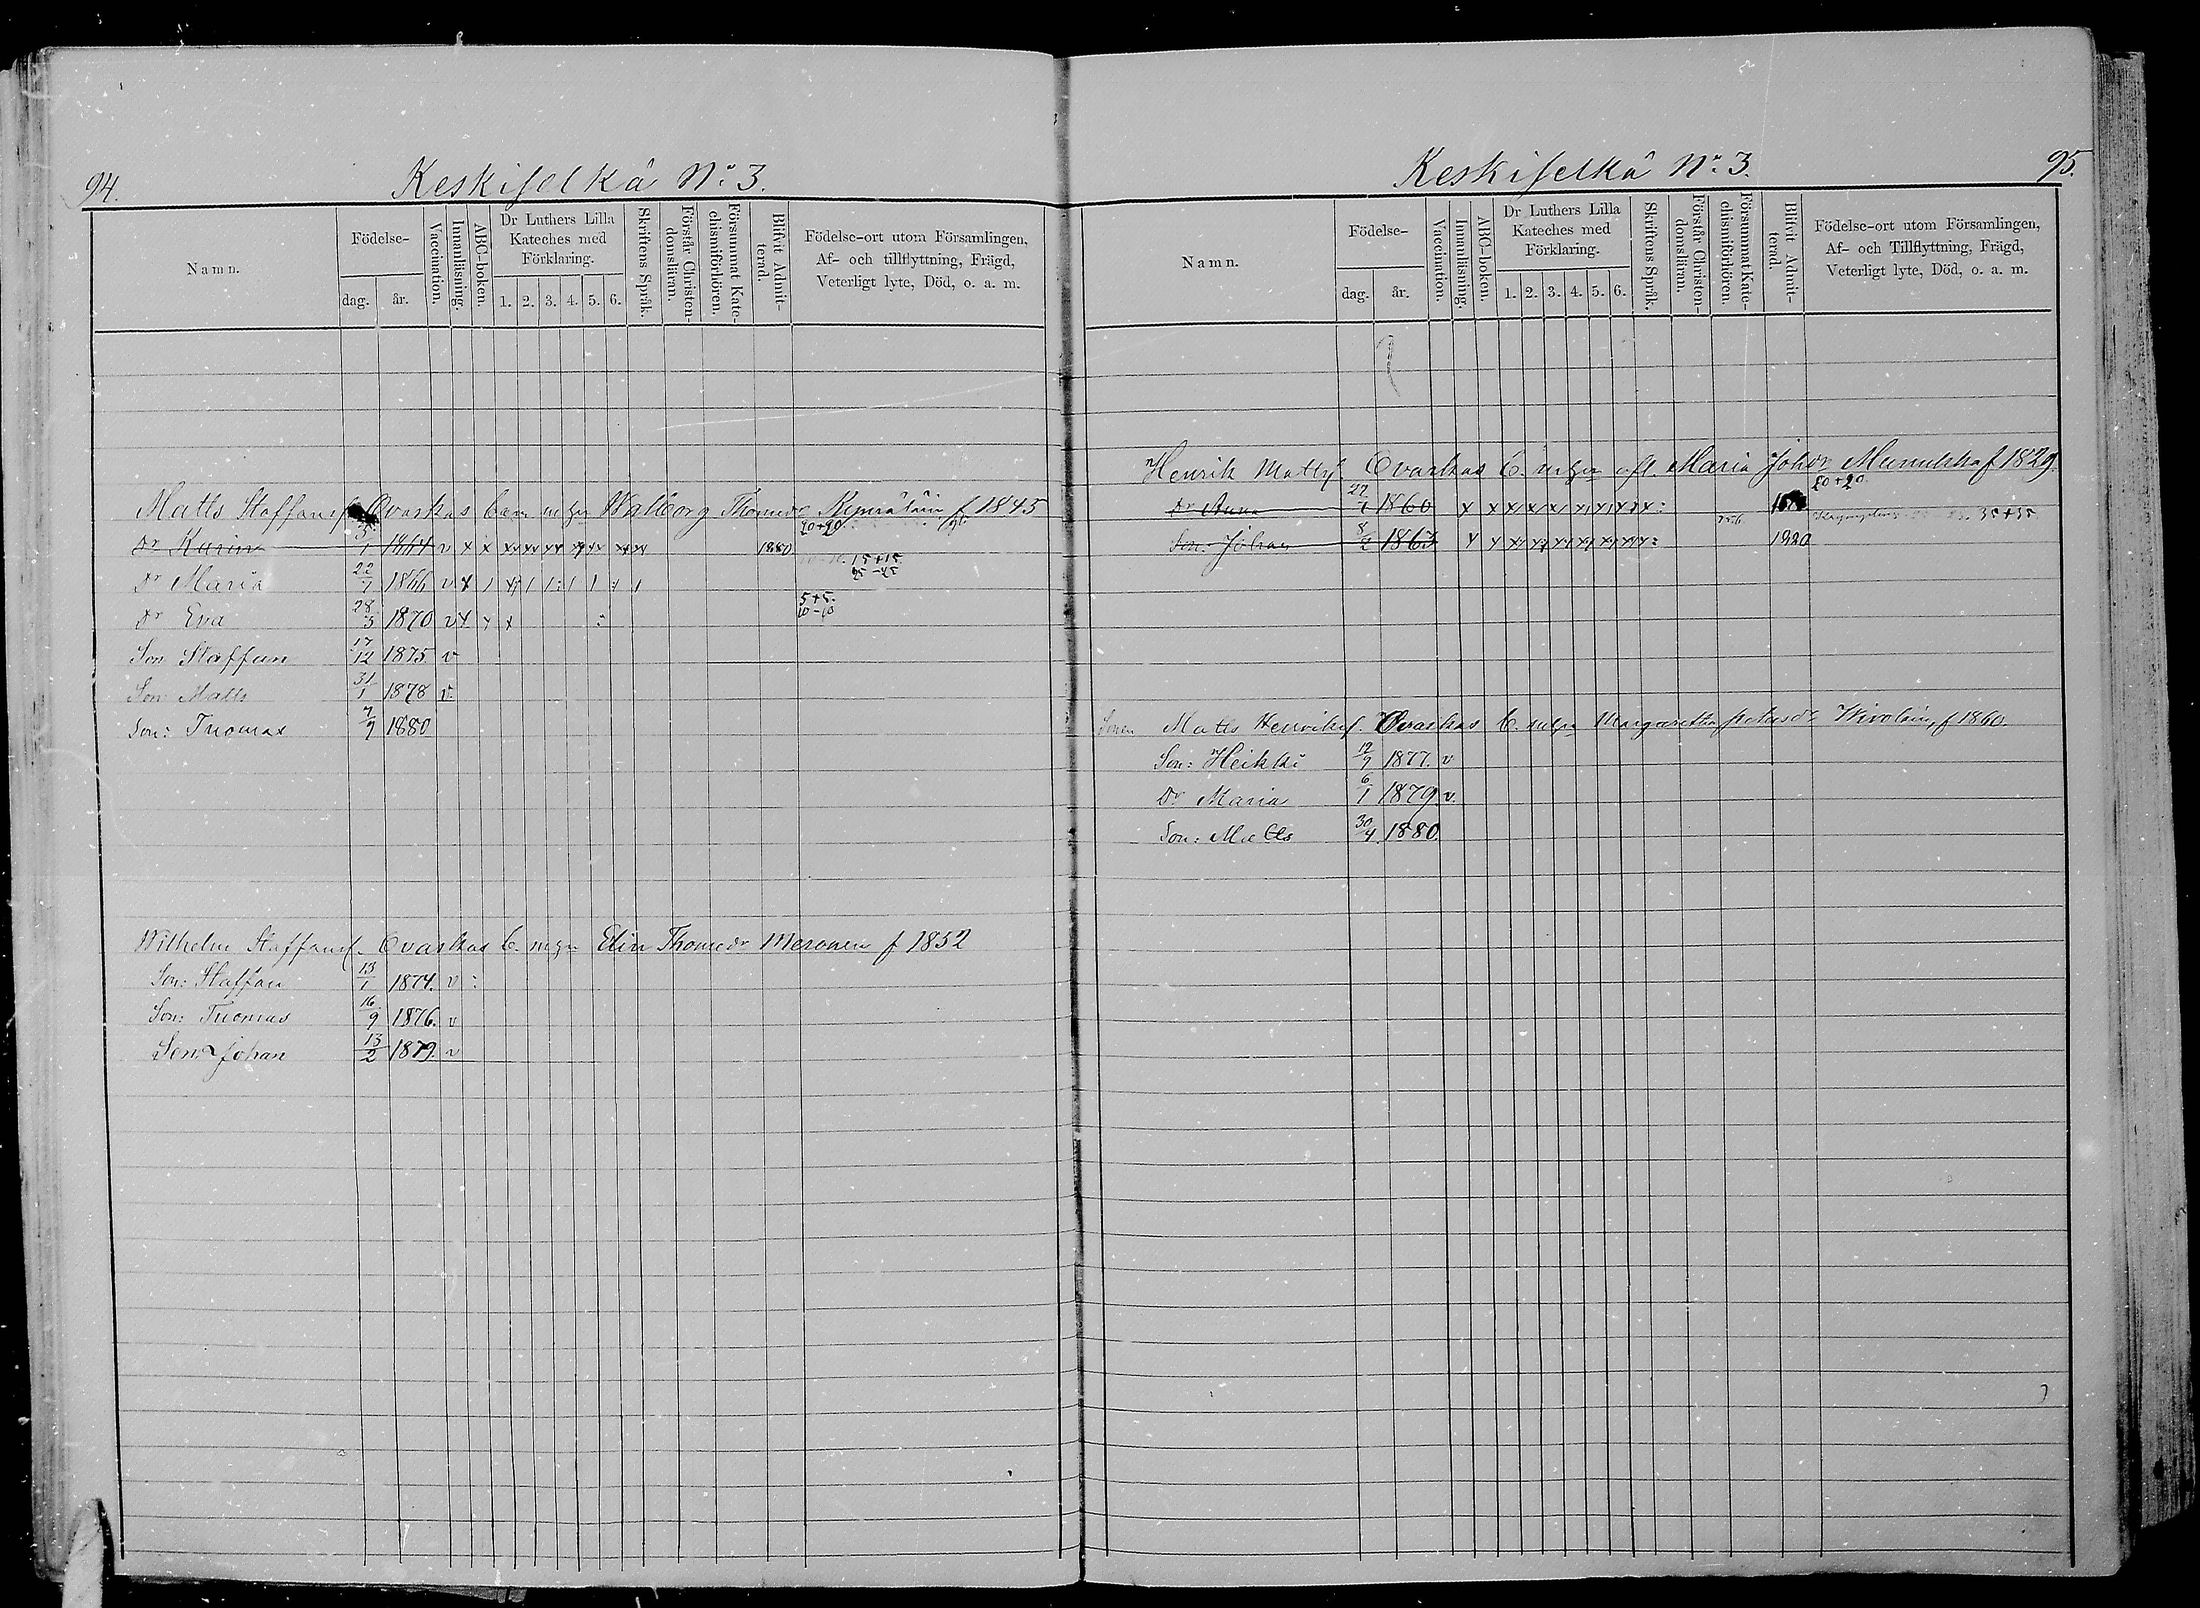 94.
Keskiselkä No 3.
Namn.
Födelse-
dag.
år.
Vaccination.
Innanläsning.
ABC-boken.
Dr Luthers Lilla Kateches med Förklaring.
1. 2. 3. 4. 5. 6.
Skriftens Språk.
Förstår Christendomsläran.
Försummat Katechismiförhören.
Blifvit Admitterad.
Födelse-ort utom Församlingen, Af- och tillflyttning, Frägd, Veterligt lyte, Död, o. a. m.
Matts Staffans Ovaskas barn m hu Walborg Thomedr f 1845
Dr Karin 5/1 1864 v x x 1880 20+20
Dr Maria 22/1 1866 v x 15+15
Dr Eva 28/3 1870 v x x x 5+5 10-10
Son Staffan 17/12 1875 v
Son Matts 31/1 1878 v
Son: Thomas 7/9 1880
Wilhelm Staffans. Ovaskas b. m hu Elin Thomedr Meronen f 1852
Son: Staffan 13/1 1874. v :
Son: Thomas 16/9 1876. v
Son Johan 13/2 1879. v
95.
Keskiselkä No 3.
Namn.
Födelse-
dag.
år.
Vaccination.
Innanläsning.
ABC-boken.
Dr Luthers Lilla Kateches med Förklaring.
1. 2. 3. 4. 5. 6.
Skriftens Språk.
Förstår Christendomsläran.
Försummat Katechismiförhören.
Blifvit Admitterad.
Födelse-ort utom Församlingen, Af- och Tillflyttning, Frägd, Veterligt lyte, Död, o. a. m.
Henrik Matts Ovaskas b. Maria Johdr f 1829
Dr Anna 22/7 1860 x 20+20
Son: Johan 8/2 1863 x 35+35
Sonen Matts Henriks. Ovaskas b. m hu Margaretha f 1860
Son: Heikki 12/9 1877. v
Dr Maria 6/1 1879 v.
Son: Matts 30/4 1880